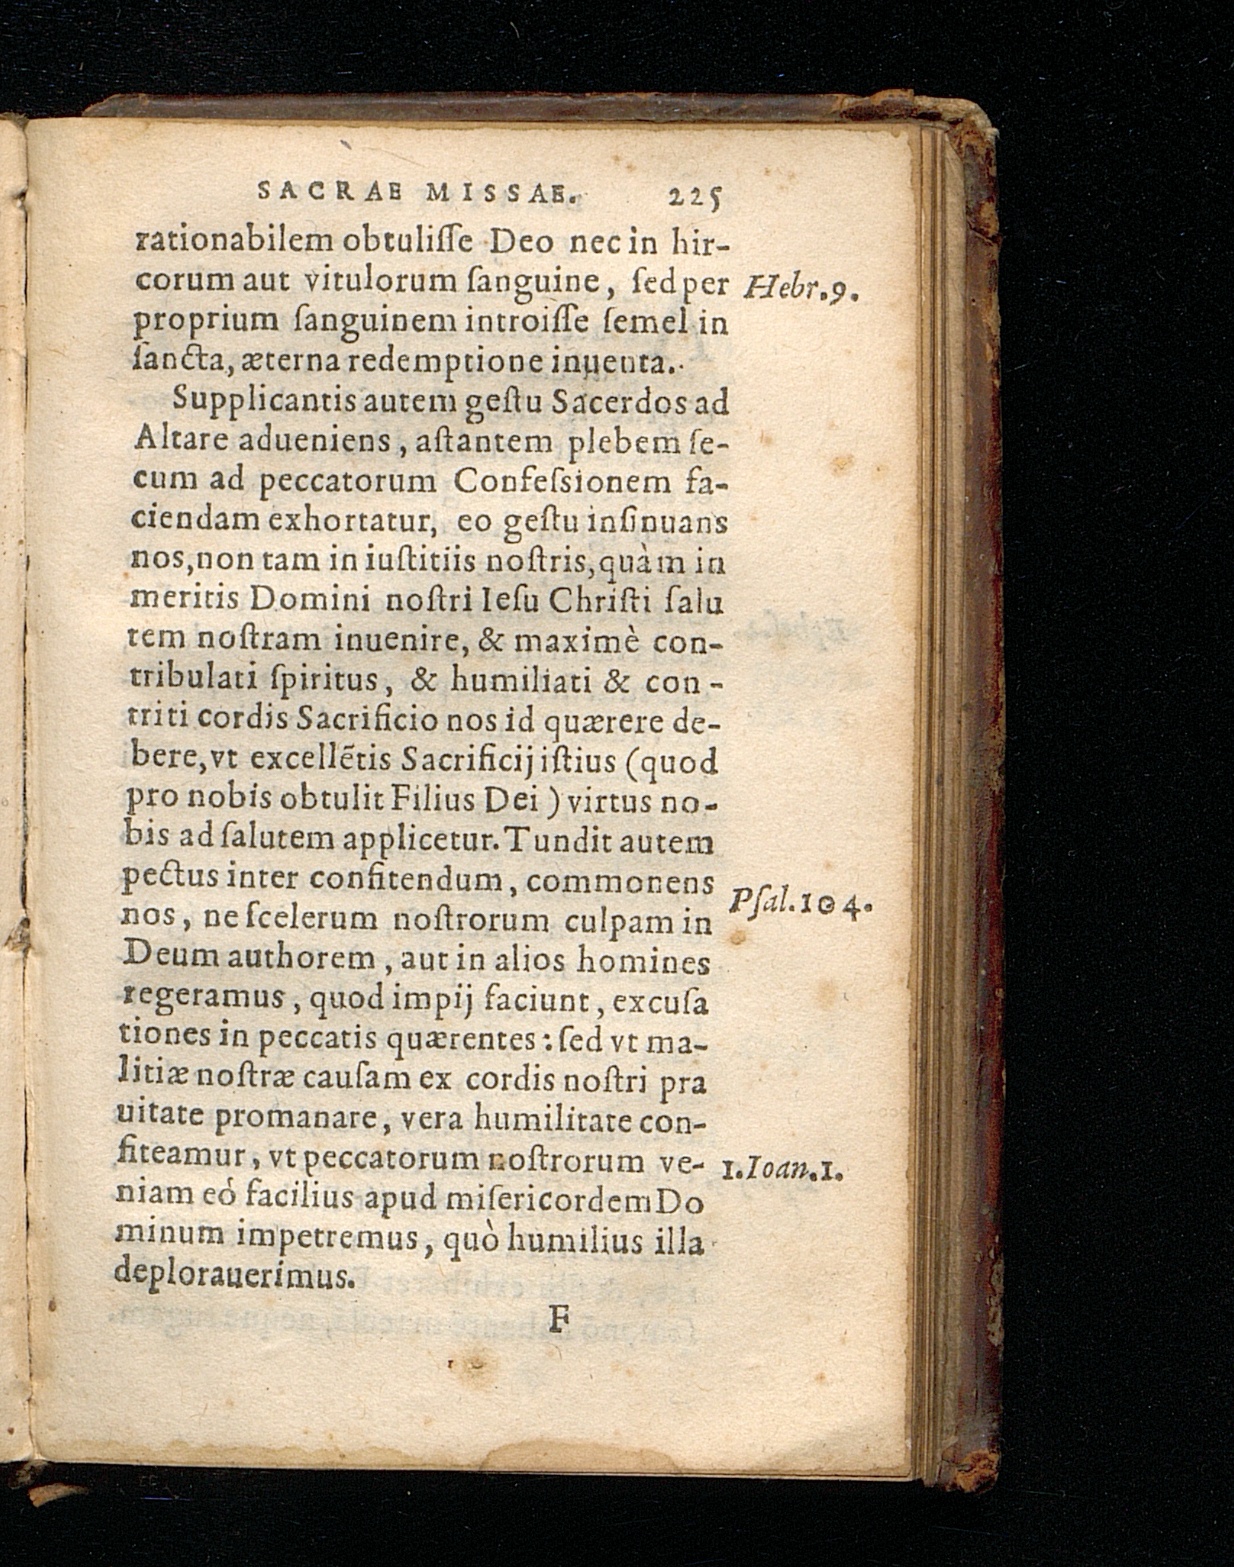 SACRAE MISSAE. 225
rationabilem obtuliſſe Deo nec in hir-
corum aut vitulorum ſanguine, ſed per Hebr.9.
proprium ſanguinem introiſſe ſemel in
ſancta, æterna redemptione inuenta.
Supplicantis autem geſtu Sacerdos ad
Altare adueniens, aſtantem plebem ſe-
cum ad peccatorum Confeſsionem fa-
ciendam exhortatur, eo geſtu inſinuans
nos, non tam in iuſtitiis noſtris, quàm in
meritis Domini noſtri Ieſu Chriſti ſalu
tem noſtram inuenire, & maximè con-
tribulati ſpiritus, & humiliati & con-
triti cordis Sacrificio nos id quærere de-
bere, vt excellẽtis Sacrificij iſtius (quod
pro nobis obtulit Filius Dei) virtus no-
bis ad ſalutem applicetur. Tundit autem
pectus inter confitendum, commonens
nos, ne ſcelerum noſtrorum culpam in Pſal.104.
Deum authorem, aut in alios homines
regeramus, quod impij faciunt, excuſa
tiones in peccatis quærentes: ſed vt ma-
litiæ noſtræ cauſam ex cordis noſtri pra
uitate promanare, vera humilitate con-
fiteamur, vt peccatorum noſtrorum ve- 1.Ioan.1.
niam eó facilius apud miſericordem Do
minum impetremus, quò humilius illa
deplorauerimus.
F